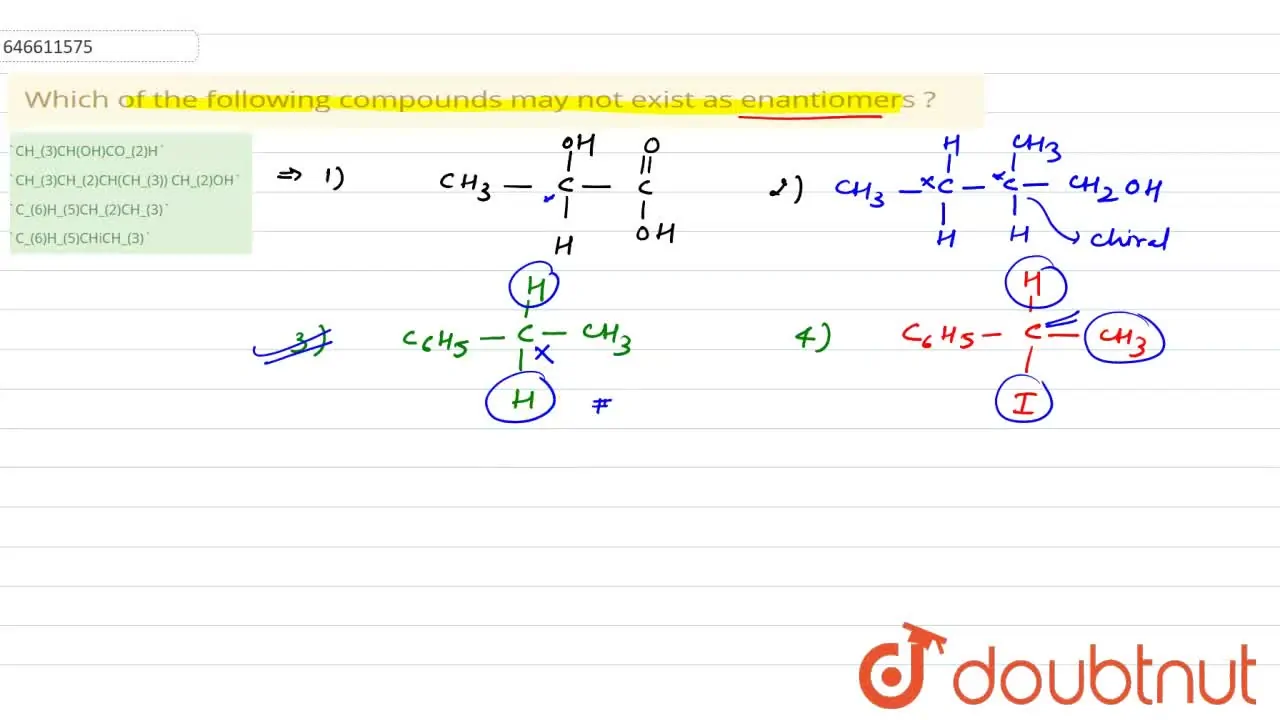 646611575
Which of the following compounds may not exist as enantiomers ?
`CH_(3)CH(OH)CO_(2)H`
`CH_(3)CH_(2)CH(CH_(3)) CH_(2)OH`
`C_(6)H_(5)CH_(2)CH_(3)`
`C_(6)H_(5)CHiCH_(3)`
OH O
⇒ 1) CH3 — C — C
H OH
H CH3
2) CH3 — C — C — CH2OH
H H chiral
H
3) C6H5 — C — CH3
H #
H
4) C6H5 — C — CH3
I
doubtnut